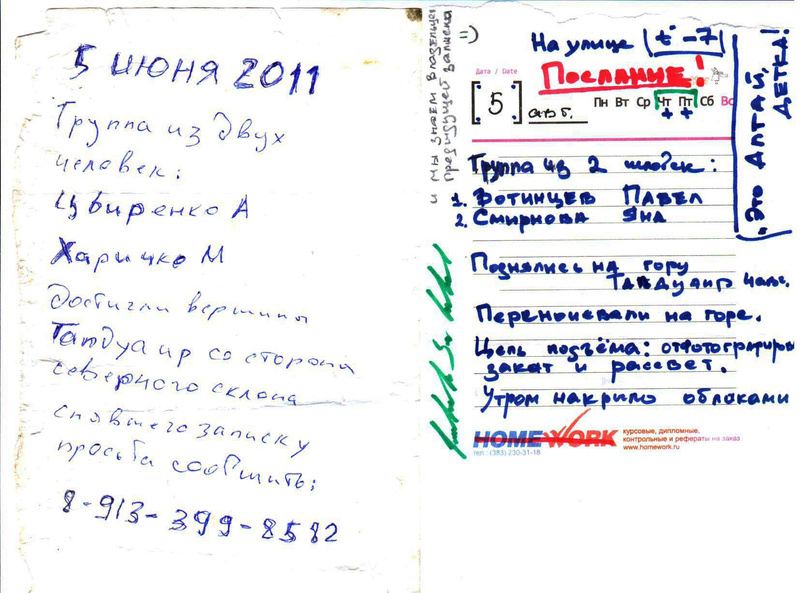 5 июня 2011
Группа из двух
человек:
Цвиренко А
Харичко М
достигли вершины
Тапдуаир со стороны
северного склона
снявшего записку
просьба сообщить:
8-913-399-8582
и мы знаем владельцев
предыдущей записки
=)
На улице t° -7
Послание!
Дата / Date
[5] авг.
Пн Вт Ср Чт Пт Сб Вс
+ +
Это Алтай,
детка!
Группа из 2 человек:
1. Вотинцев Павел
2. Смирнова Яна
Поднялись на гору
Тапдуаир
Переночевали на горе.
Цель подъёма: отфотографиров
закат и рассвет.
Утром накрыло облаками
HOMEWORK
тел.: (383) 230-31-18
курсовые, дипломные,
контрольные и рефераты на заказ
www.homework.ru